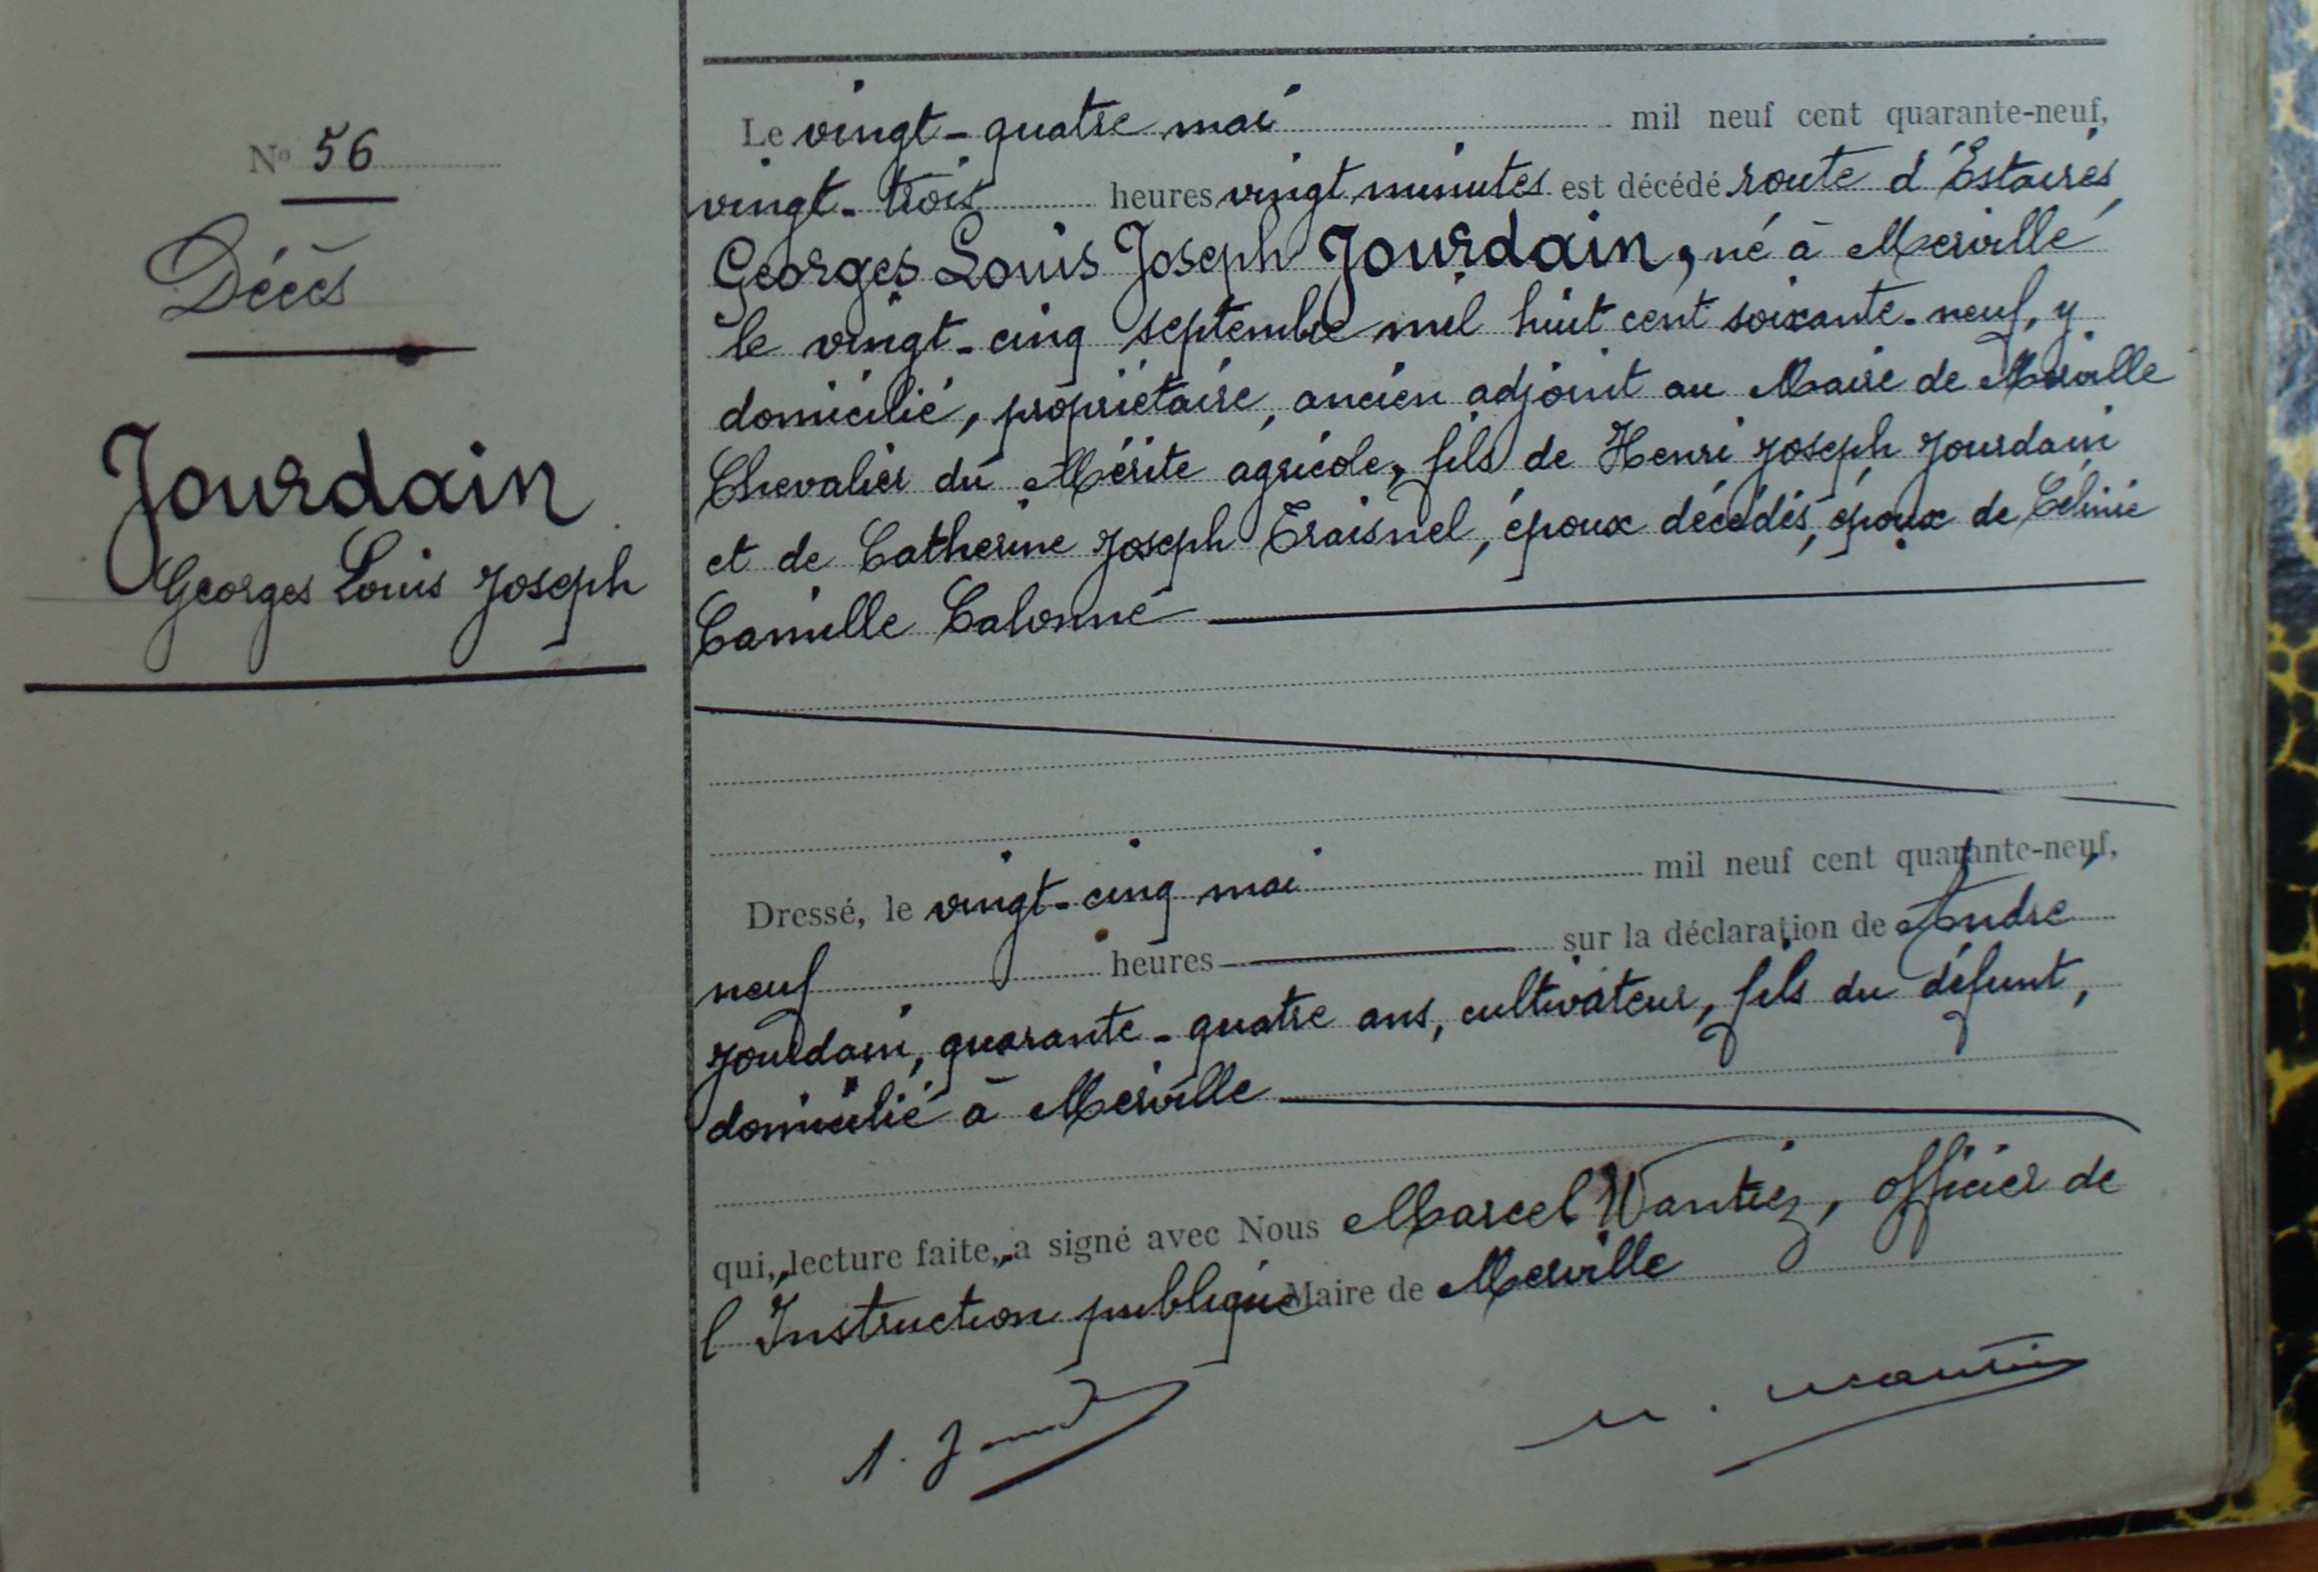 N° 56
Décès
Jourdain
Georges Louis Joseph
Le vingt-quatre mai mil neuf cent quarante-neuf,
vingt-trois heures vingt minutes est décédé route d'Estaires,
Georges Louis Joseph Jourdain, né à Merville
le vingt-cinq septembre mil huit cent soixante-neuf, y
domicilié, propriétaire, ancien adjoint au Maire de Merville
Chevalier du Mérite agricole, fils de Henri Joseph Jourdain
et de Catherine Joseph Traisnel, époux décédés, époux de Célinie
Camille Calonne
Dressé, le vingt-cinq mai mil neuf cent quarante-neuf,
neuf heures sur la déclaration de André
Jourdain, quarante-quatre ans, cultivateur, fils du défunt,
domicilié à Merville
qui, lecture faite, a signé avec Nous Marcel Wantiez, officier de
l'Instruction publique Maire de Merville